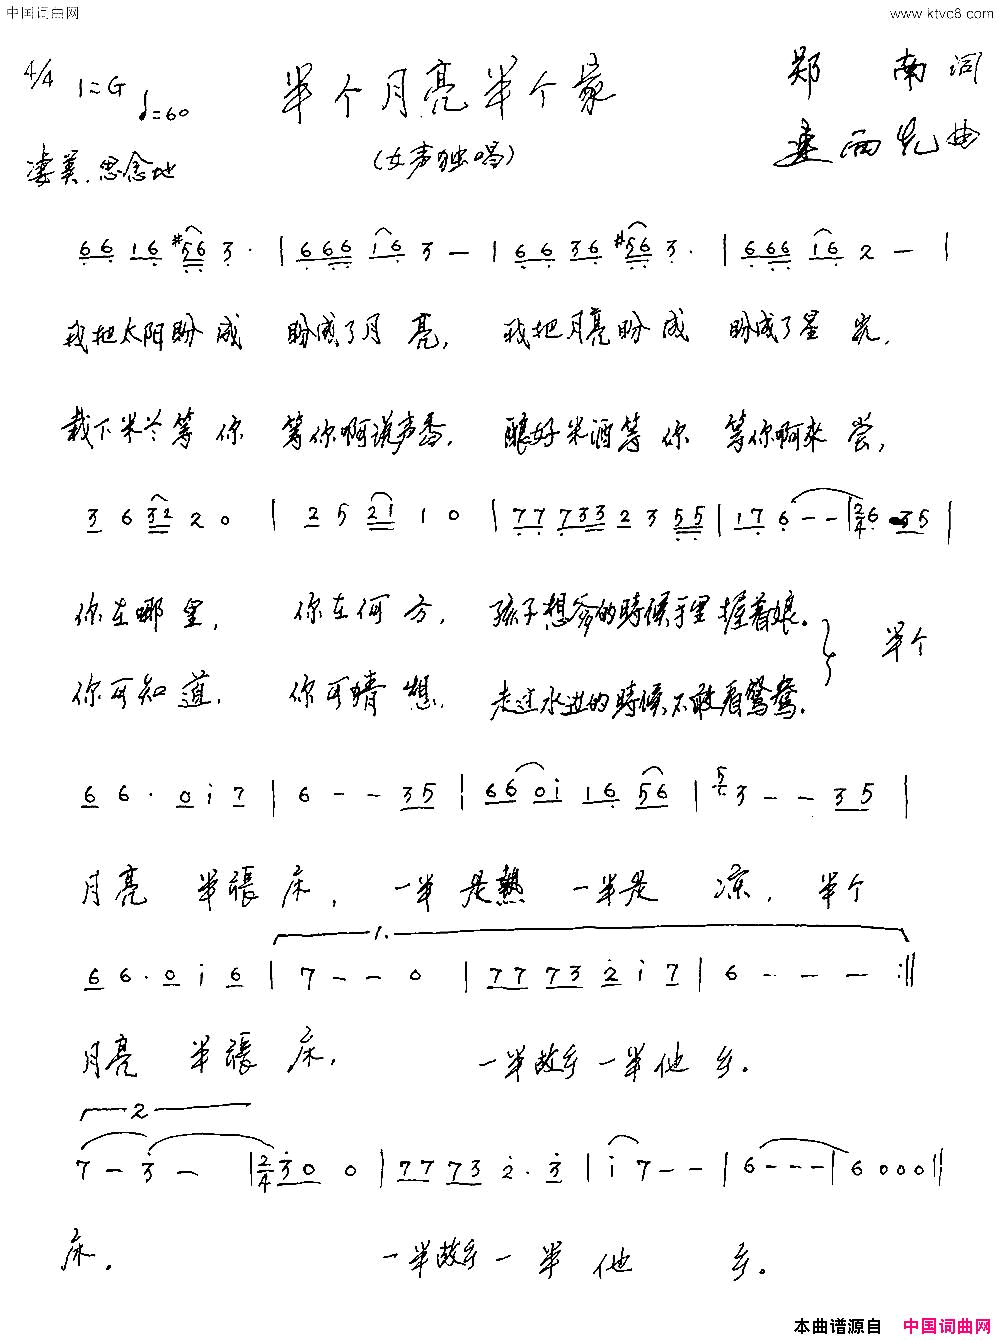 中国词曲网 www.ktvc8.com
4/4 1=G ♩=60
半个月亮半个家
(女声独唱)
郑南词
娄西先曲
凄美.思念地
6 6 1 6 #5 6 3 · | 6 6 6 1 6 3 — | 6 6 3 6 #5 6 3 · | 6 6 6 1 6 2 — |
我把太阳盼成 盼成了月亮, 我把月亮盼成 盼成了星光,
栽下米兰等你 等你啊说声香, 酿好米酒等你 等你啊来尝,
3 6 3 2 2 0 | 2 5 2 1 1 0 | 7 7 7 3 3 2 3 5 5 | 1 7 6 - - | 2/4 6 3 5 |
你在哪里, 你在何方, 孩子想爹的時候手里握着娘。 半个
你可知道, 你可猜想, 走过水边的時候不敢看鸳鸯.
6 6 · 0 i 7 | 6 - - 3 5 | 6 6 0 i 1 6 5 6 | 5 3 - - 3 5 |
月亮 半張床, 一半是熱 一半是凉, 半个
1.
6 6 · 0 i 6 | 7 - - 0 | 7 7 7 3 2 i 7 | 6 - - - :||
月亮 半張床, 一半故乡一半他乡.
2
7 - 3 - | 2/4 3 0 0 | 7 7 7 3 2 · 3 | i 7 - - | 6 - - - | 6 0 0 0 ||
床. 一半故乡一半他乡.
本曲谱源自 中国词曲网